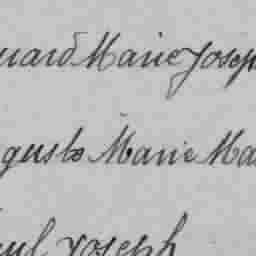 uard Marie Joseph
guste Marie Ma
ul Joseph